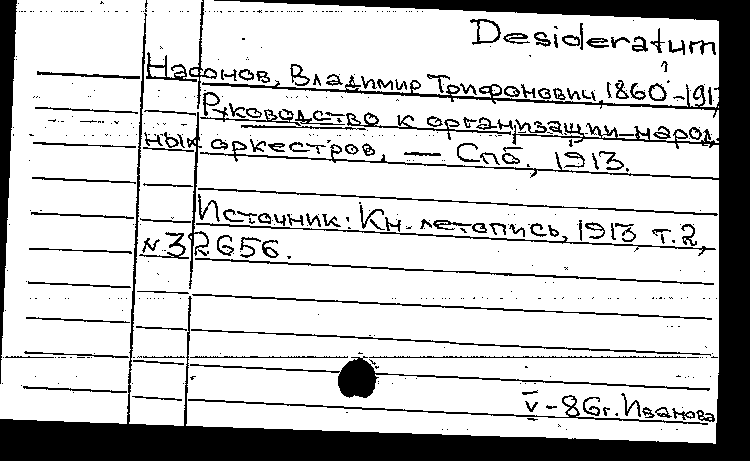 Desideratum
Насонов, Владимир Трифонович, 1860?-191
Руководство к организации народ-
ных оркестров, — Спб., 1913.
Источник: Кн. летопись, 1913, т.2,
№32656.
V-86г. Иванова